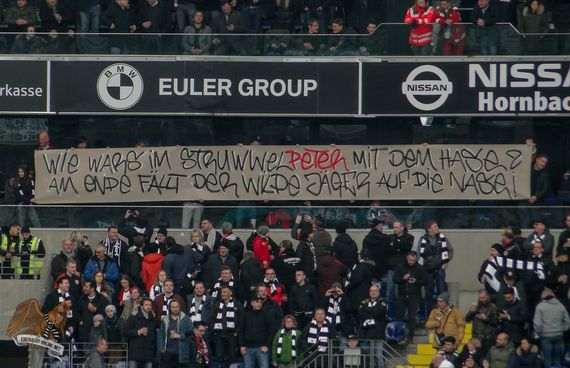 arkasse
BMW
EULER GROUP
NISSAN
NISSA
Hornbac
WIE WARS IM STRUWWELPETER MIT DEM HASE?
AM ENDE FÄLLT DER WILDE JÄGER AUF DIE NASE!
EINTRACHT-ONLINE.NET